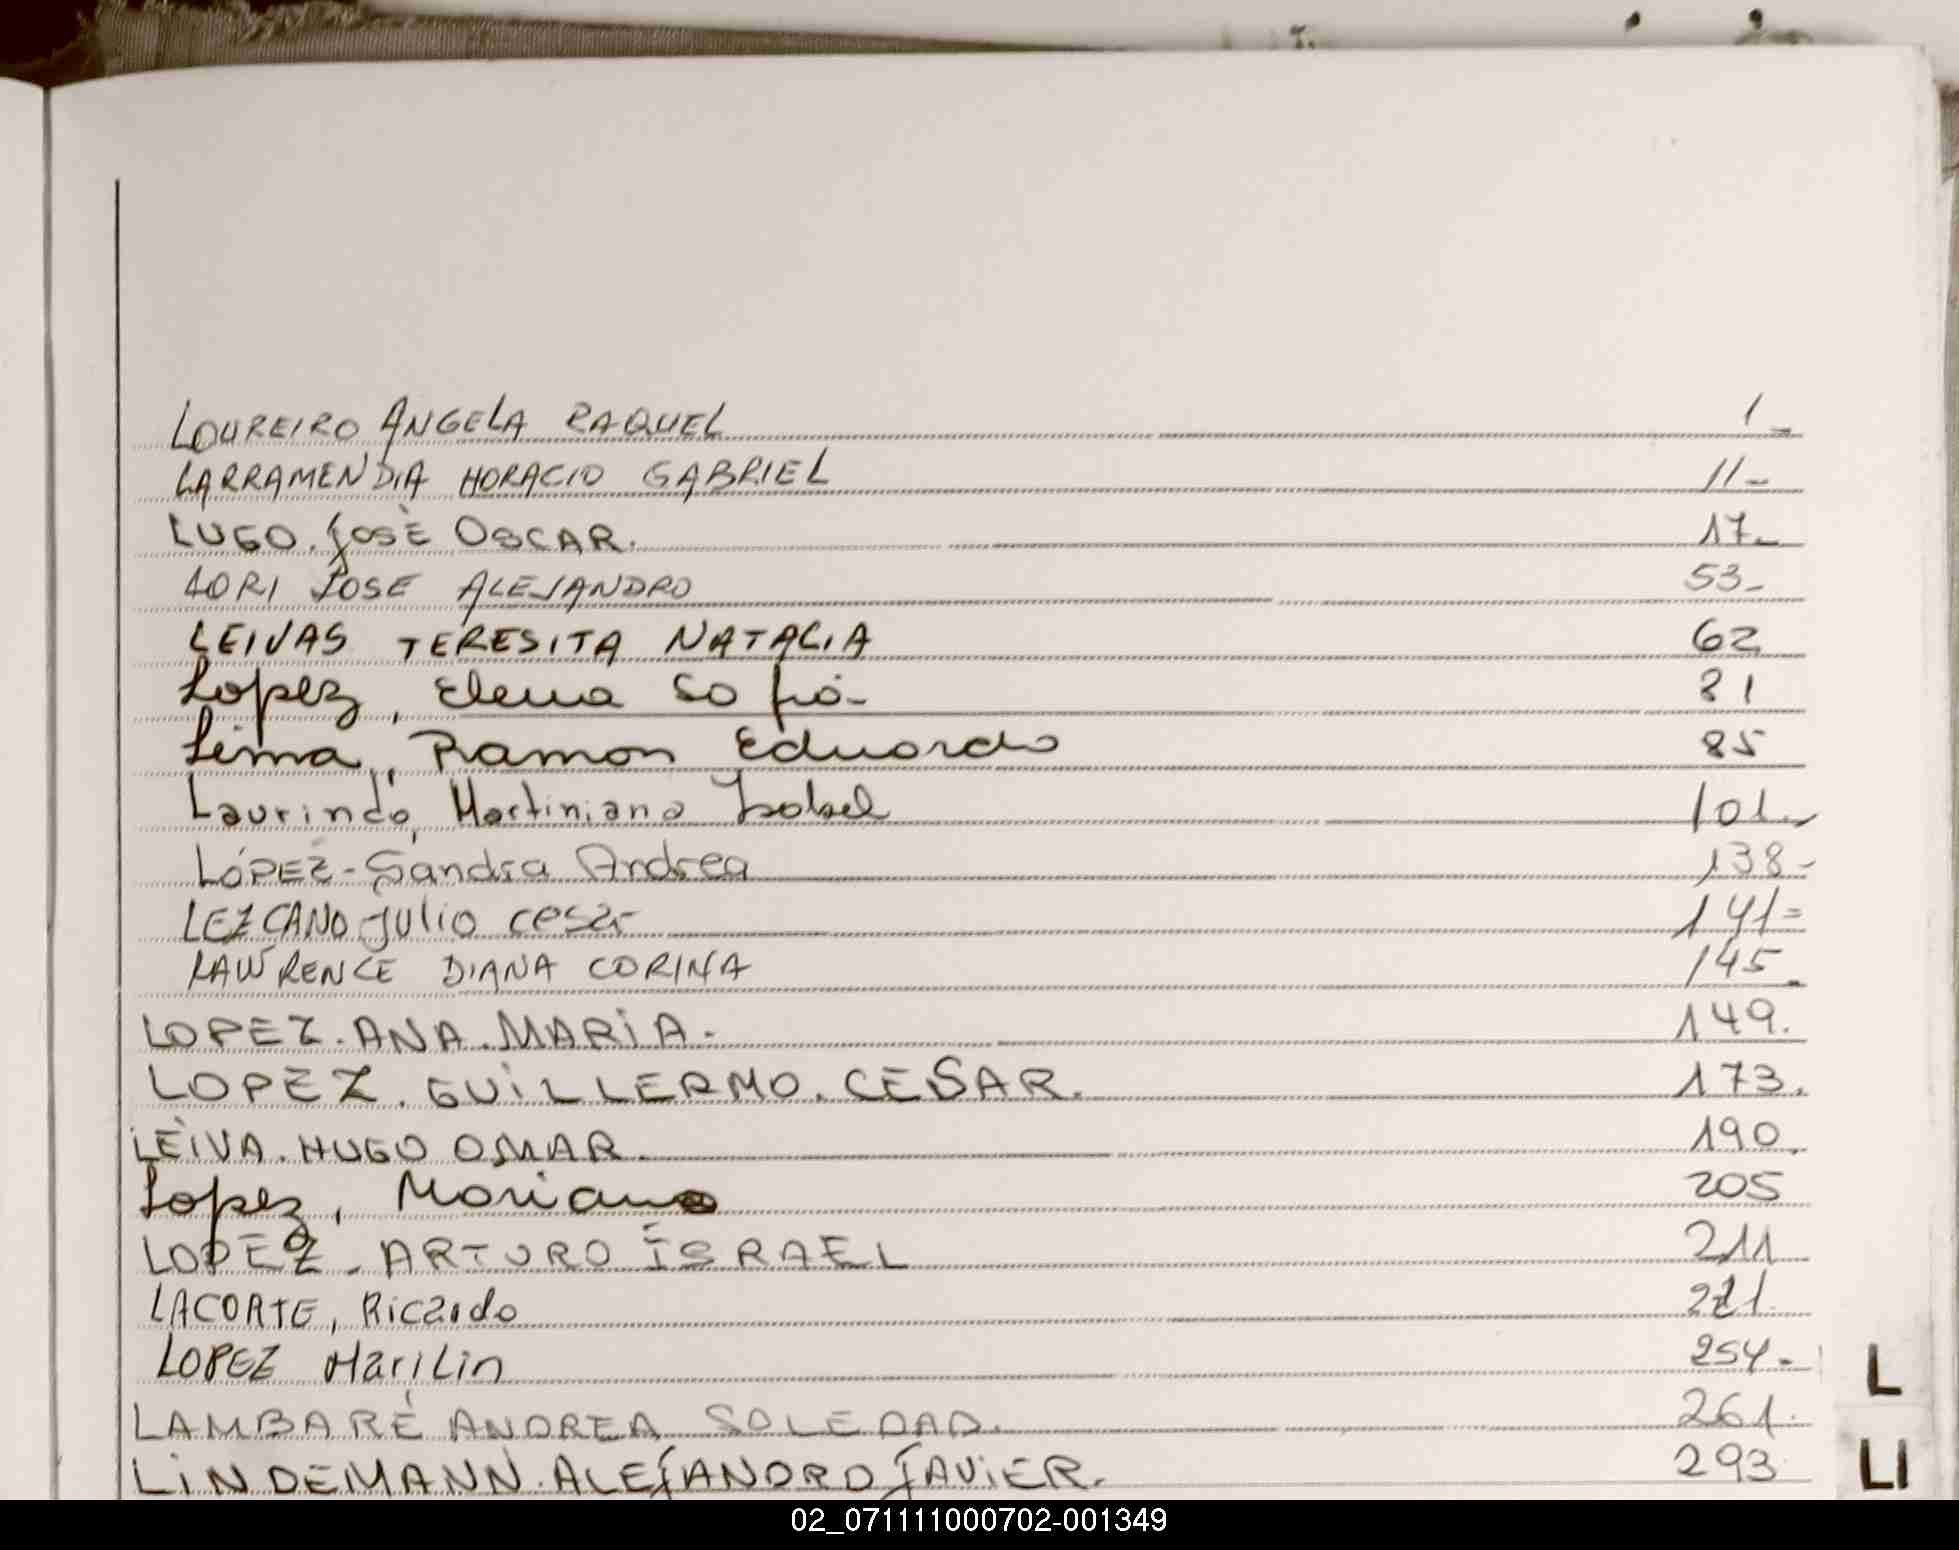 LOUREIRO ANGELA RAQUEL 1_
LARRAMENDIA HORACIO GABRIEL 11-
LUGO. JOSÈ OSCAR. 17_
LORI JOSE ALEJANDRO 53-
LEIVAS TERESITA NATALIA 62
Lopez, Elena Sofia- 81
Lima, Ramon Eduardo 85
Laurindo, Martiniana Isabel 101.-
LÓPEZ-Sandra Andrea 138-
LEZCANO Julio cesar 141=
LAWRENCE DIANA CORINA 145_
LOPEZ. ANA. MARiA. 149.
LOPEZ. GUiLLERMO. CESAR. 173.
LEiVA. HUGO OMAR. 190.
Lopez, Mariano 205
LOPEZ - ARTURO ISRAEL 211
LACORTE, Ricardo 221.
LOPEZ MariLin 254-
LAMBARÉ ANDREA SOLEDAD. 261.
LiNDEMANN. ALEJANDRO JAViER. 293
L
LI
02_071111000702-001349